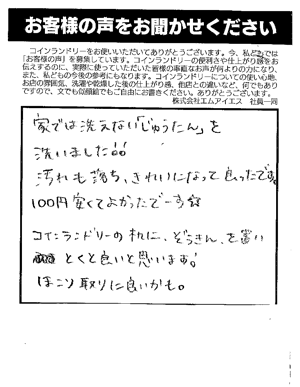 お客様の声をお聞かせください
コインランドリーをお使いいただいてありがとうございます。今、私どもでは
「お客様の声」を募集しています。コインランドリーの便利さや仕上がり感をお
伝えするのに、実際に使っていただいた皆様の率直なお声が何よりの力になり、
また、私どもの今後の参考にもなります。コインランドリーについての使い心地、
お店の雰囲気、洗濯や乾燥した後の仕上がり感、他店との違いなど、何でもあり
ですので、文でも似顔絵でもご自由にお書きください。ありがとうございます。
株式会社エムアイエス 社員一同
家では洗えない「じゅうたん」を
洗いました!!
汚れも落ち、きれいになって良ったです。
100円安くてよかったでーす☆
コインランドリーの机に、ぞうきん、を置い
とくと良いと思います!
ほこり取りに良いかも。